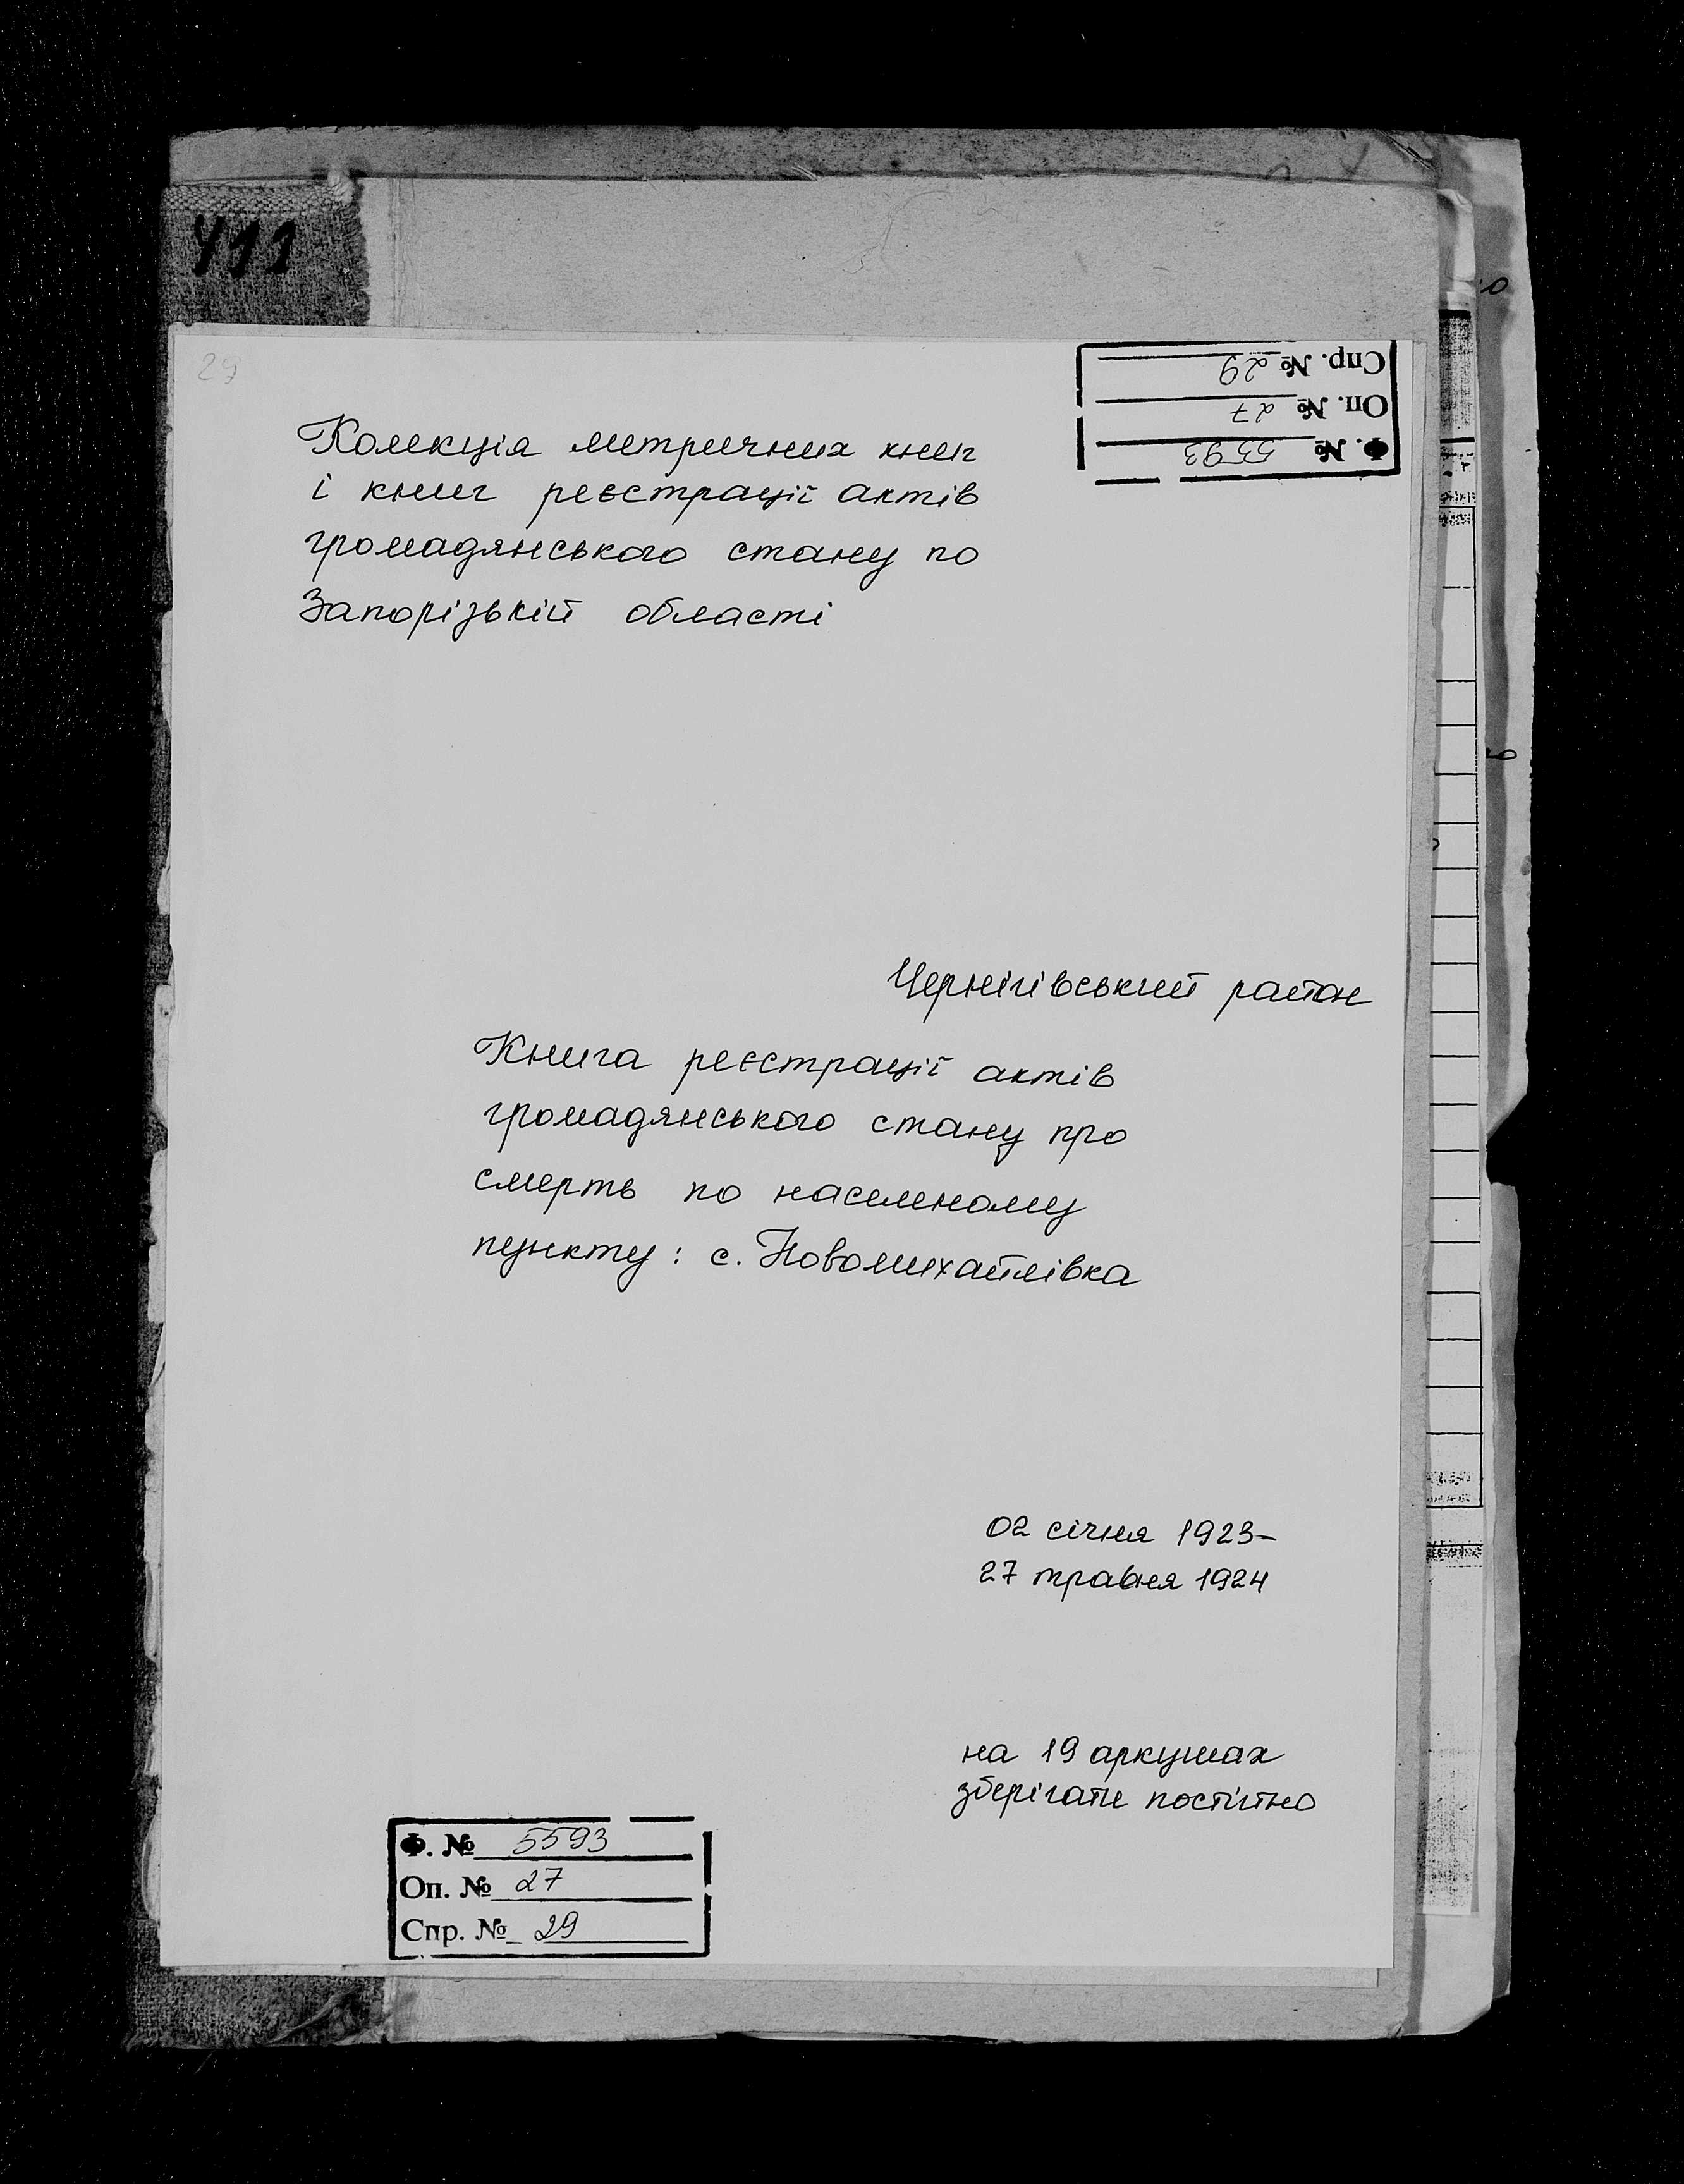 411
29
Спр. № 29
Оп. № 27
Ф. № 5593
Колекція метричних книг
і книг реєстрації актів
громадянського стану по
Запорізькій області
Чернігівський район
Книга реєстрації актів
громадянського стану про
смерть по населеному
пункту: с. Новомихайлівка
02 січня 1923-
27 травня 1924
на 19 аркушах
зберігати постійно
Ф. № 5593
Оп. № 27
Спр. № 29